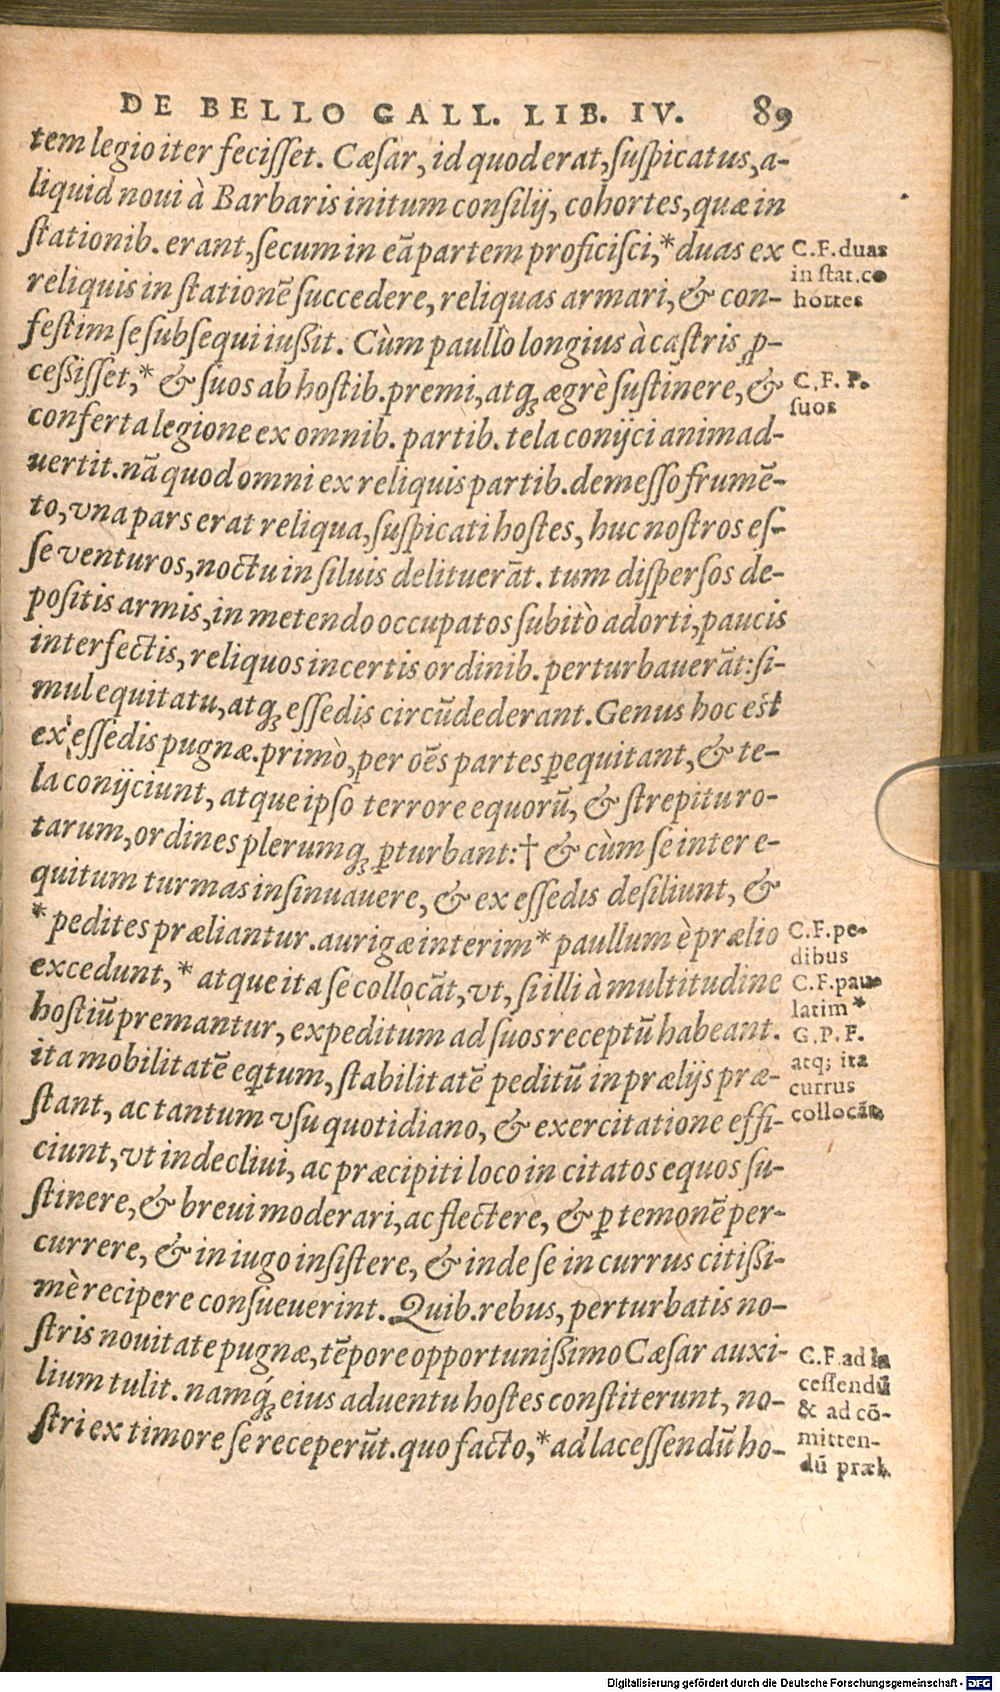 DE BELLO GALL. LIB. IV. 89
tem legio iter fecisset. Cæsar, id quod erat, suspicatus, a-
liquid noui à Barbaris initum consilij, cohortes, quæ in
stationib. erant, secum in eā partem proficisci,* duas ex
reliquis in stationē succedere, reliquas armari, & con-
festim se subsequi iussit. Cùm paullò longius à castris ꝓ-
cessisset,* & suos ab hostib. premi, atq; ægrè sustinere, &
conferta legione ex omnib. partib. tela conijci animad-
uertit. nā quod omni ex reliquis partib. demesso frumē-
to, vna pars erat reliqua, suspicati hostes, huc nostros es-
se venturos, noctu in siluis delituerāt. tum dispersos de-
positis armis, in metendo occupatos subitò adorti, paucis
interfectis, reliquos incertis ordinib. perturbauerāt: si-
mul equitatu, atq; essedis circūdederant. Genus hoc est
ex essedis pugnæ. primò, per oēs partes ꝑequitant, & te-
la conijciunt, atque ipso terrore equorū, & strepitu ro-
tarum, ordines plerumq; ꝑturbant:† & cùm se inter e-
quitum turmas insinuauere, & ex essedis desiliunt, &
* pedites præliantur. aurigæ interim* paullum è prælio
excedunt,* atque ita se collocāt, vt, si illi à multitudine
hostiū premantur, expeditum ad suos receptū habeant.
ita mobilitatē eqtum, stabilitatē peditū in prælijs præ-
stant, ac tantum vsu quotidiano, & exercitatione effi-
ciunt, vt in decliui, ac præcipiti loco incitatos equos su-
stinere, & breui moderari, ac flectere, & ꝑ temonē per-
currere, & in iugo insistere, & inde se in currus citissi-
mè recipere consueuerint. Quib. rebus, perturbatis no-
stris nouitate pugnæ, tēpore opportunissimo Cæsar auxi-
lium tulit. namq; eius aduentu hostes constiterunt, no-
stri ex timore se receperūt. quo facto,* ad lacessendū ho-
C.F. duas
in stat. co
hortes
C.F.P.
suos
C.F. pe-
dibus
C.F. pau-
latim *
G.P.F.
atq; ita
currus
collocāt,
C.F. ad la
cessendū
& ad cō-
mitten-
dū præl.
Digitalisierung gefördert durch die Deutsche Forschungsgemeinschaft - DFG